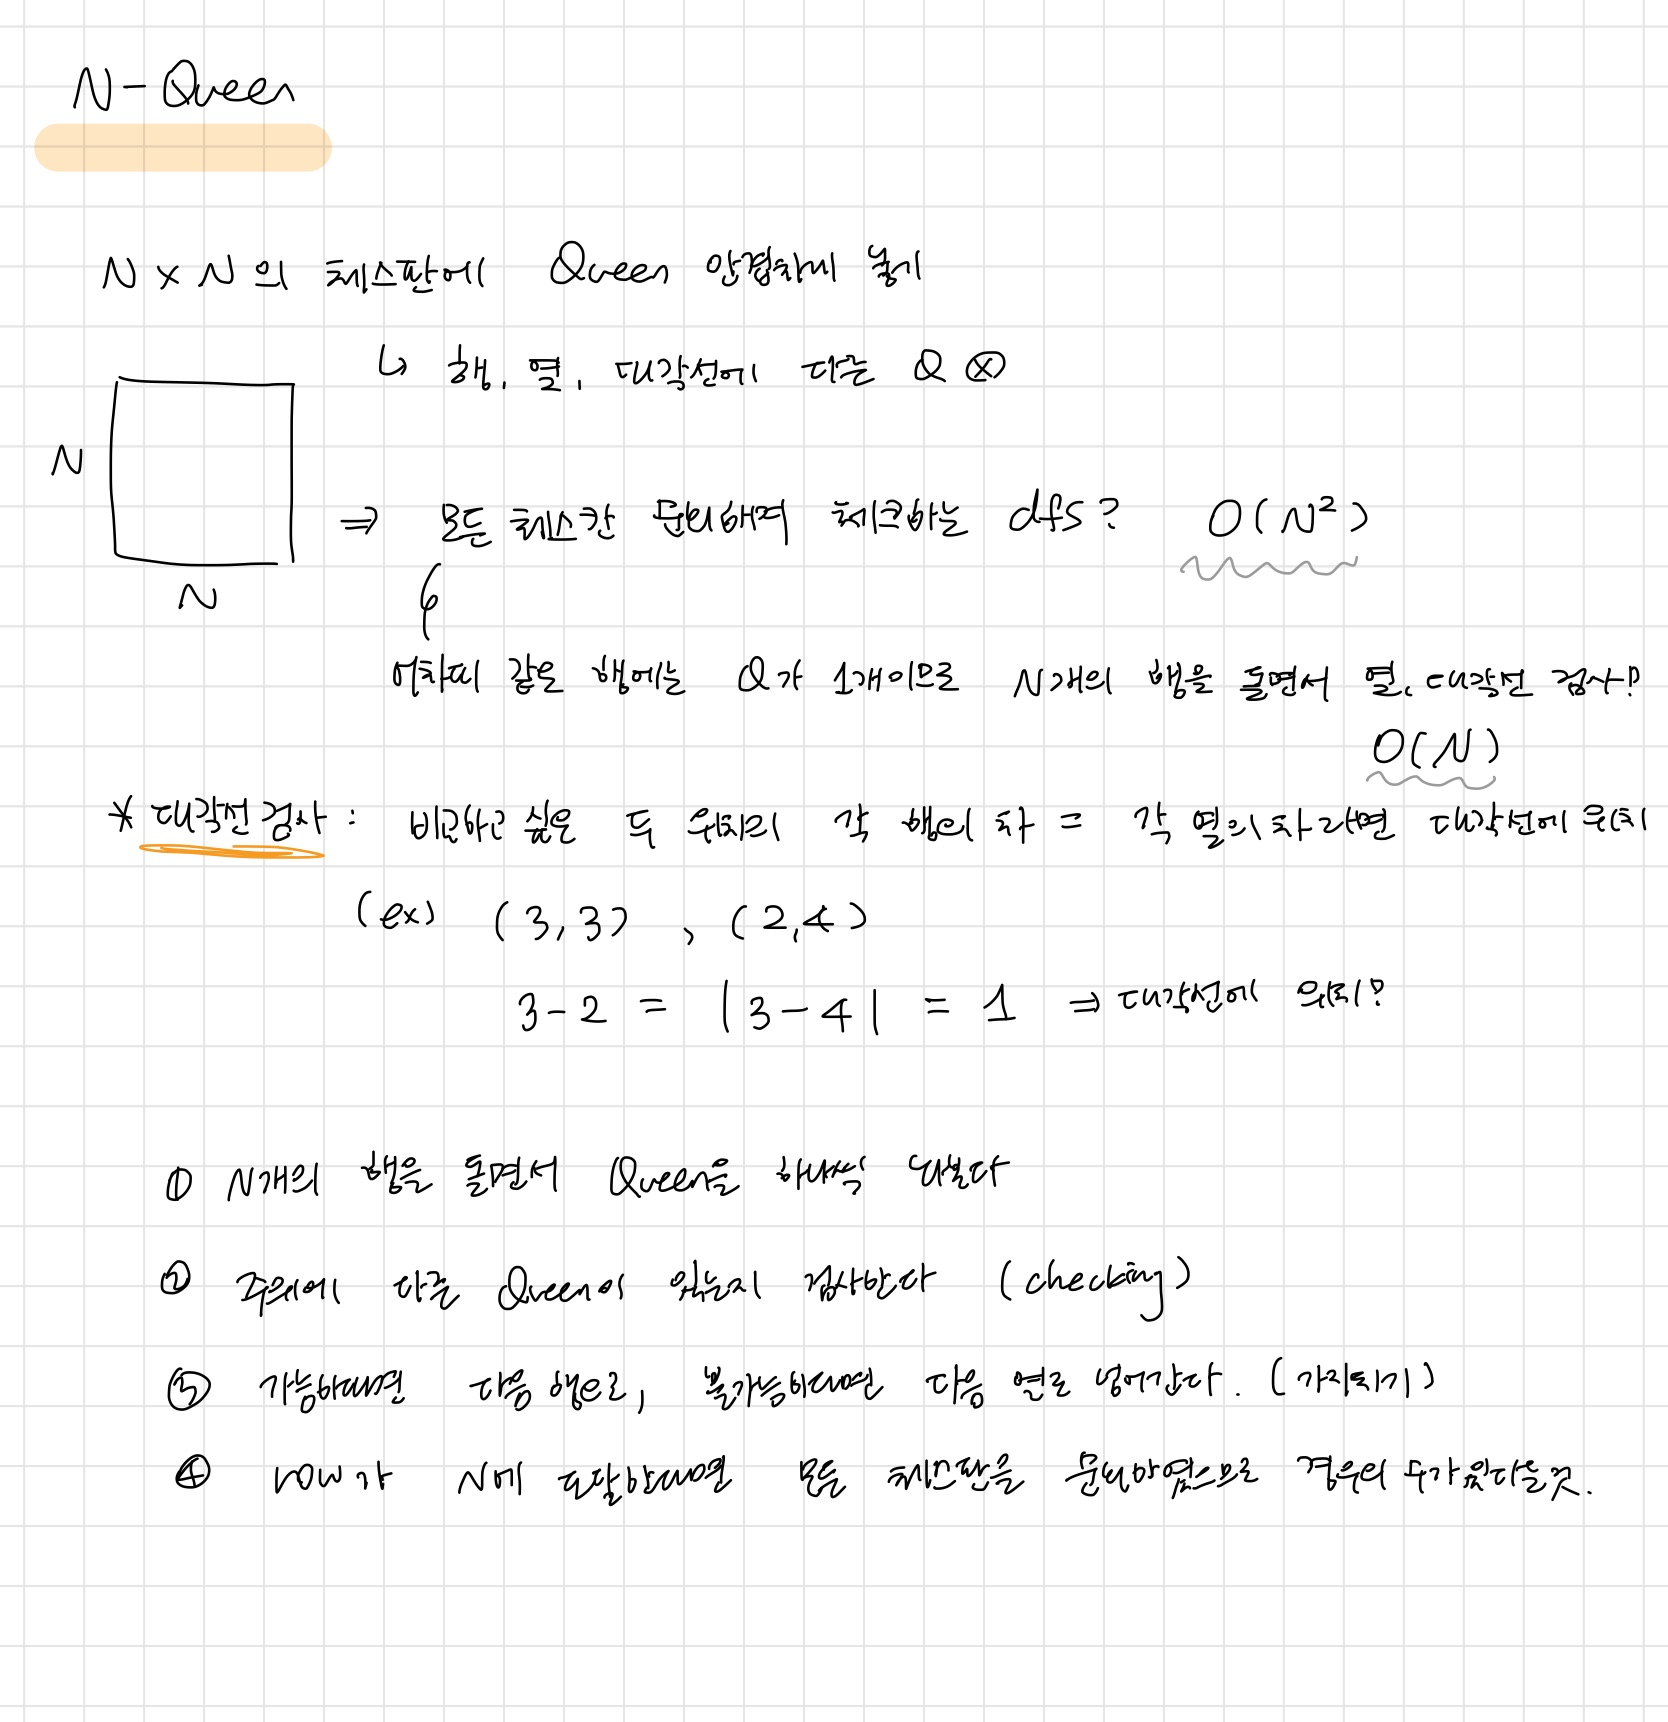 N-Queen
N×N의 체스판에 Queen 안겹치게 놓기
↳ 행, 열, 대각선에 다른 Q ⓧ
N
N
⇒ 모든 체스칸 순회하며 체크하는 dfs? O(N²)
어차피 같은 행에는 Q가 1개이므로 N개의 행을 돌면서 열, 대각선 검사!
O(N)
* 대각선 검사 : 비교하고 싶은 두 위치의 각 행의 차 = 각 열의 차 라면 대각선에 위치
(ex) (3,3) , (2,4)
3-2 = |3-4| = 1 ⇒ 대각선에 위치!
① N개의 행을 돌면서 Queen을 하나씩 놔본다
② 주위에 다른 Queen이 있는지 검사한다 (checking)
③ 가능하다면 다음 행으로, 불가능하다면 다음 열로 넘어간다. (가지치기)
④ row가 N에 도달한다면 모든 체스판을 순회하였으므로 경우의 수가 있다는것.